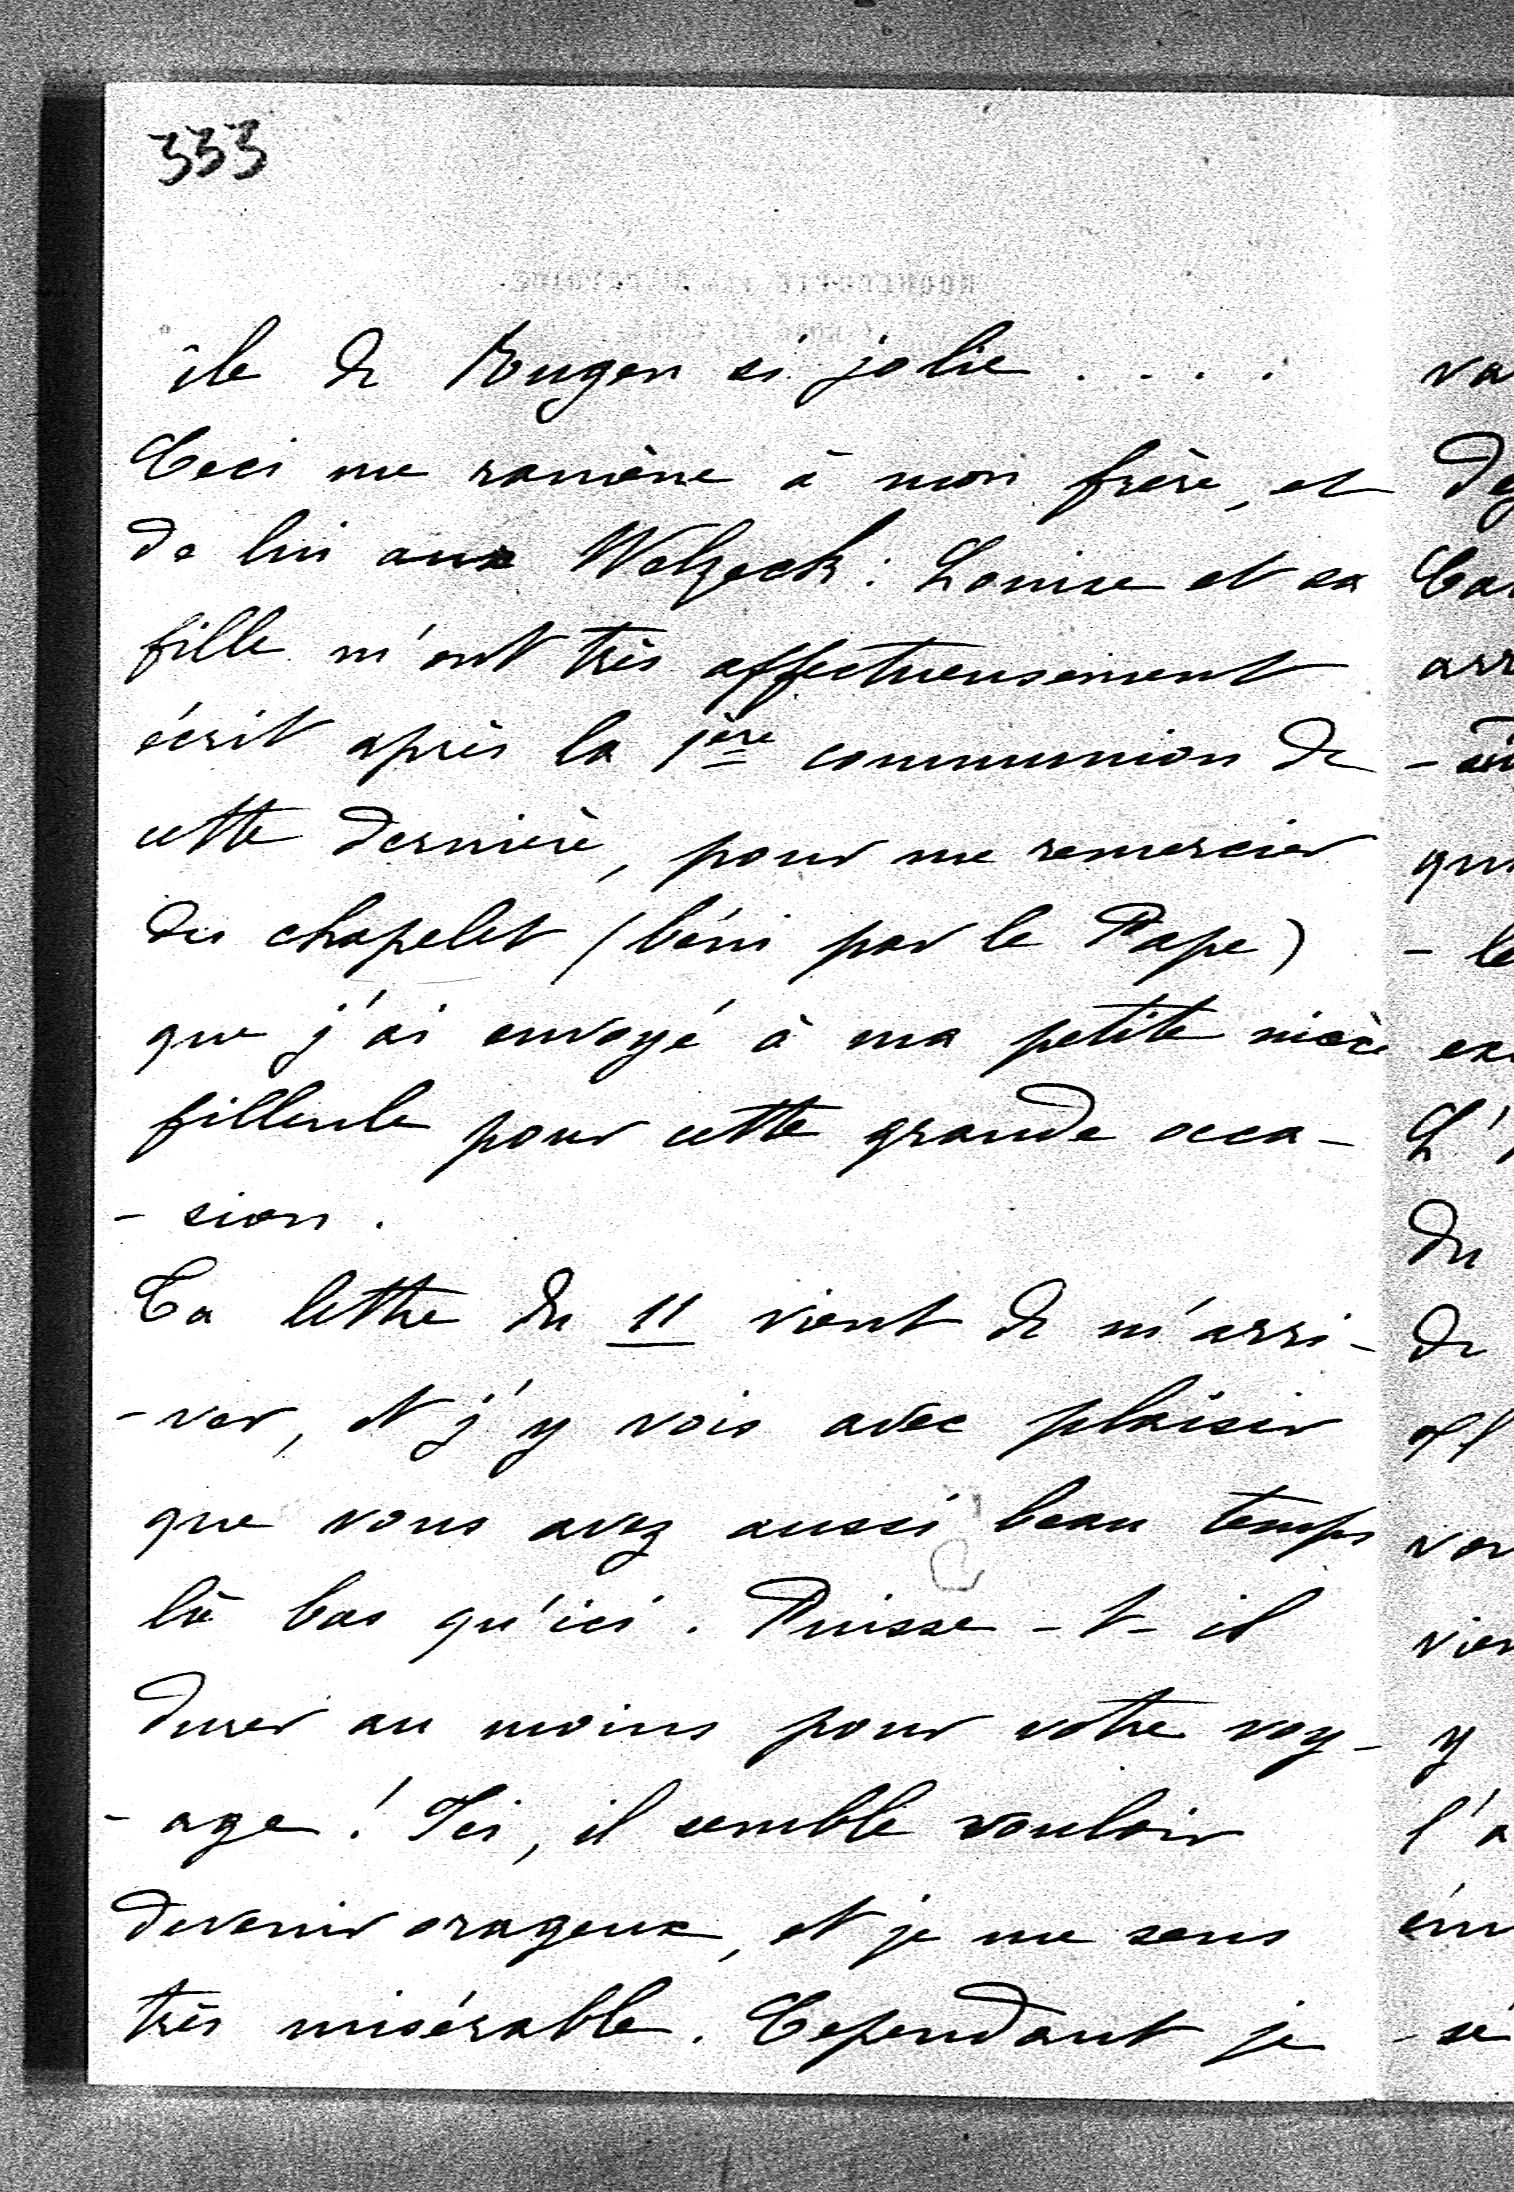 333
île de Rugen si jolie . . . .
Ceci me ramène à mon frère, et
de lui aux Welzeck : Louise et sa
fille m'ont très affectueusement
écrit après la 1ère communion de
cette dernière, pour me remercier
du chapelet (béni par le Pape)
que j'ai envoyé à ma petite nièce
filleule pour cette grande occa-
- sion .
Ta lettre du 11 vient de m'arri-
- ver, et j'y vois avec plaisir
que vous avez aussi beau temps
là bas qu'ici . Puisse - t - il
durer au moins pour votre voy-
- age ! Ici, il semble vouloir
devenir orageux, et je me sens
très misérable . Cependant je